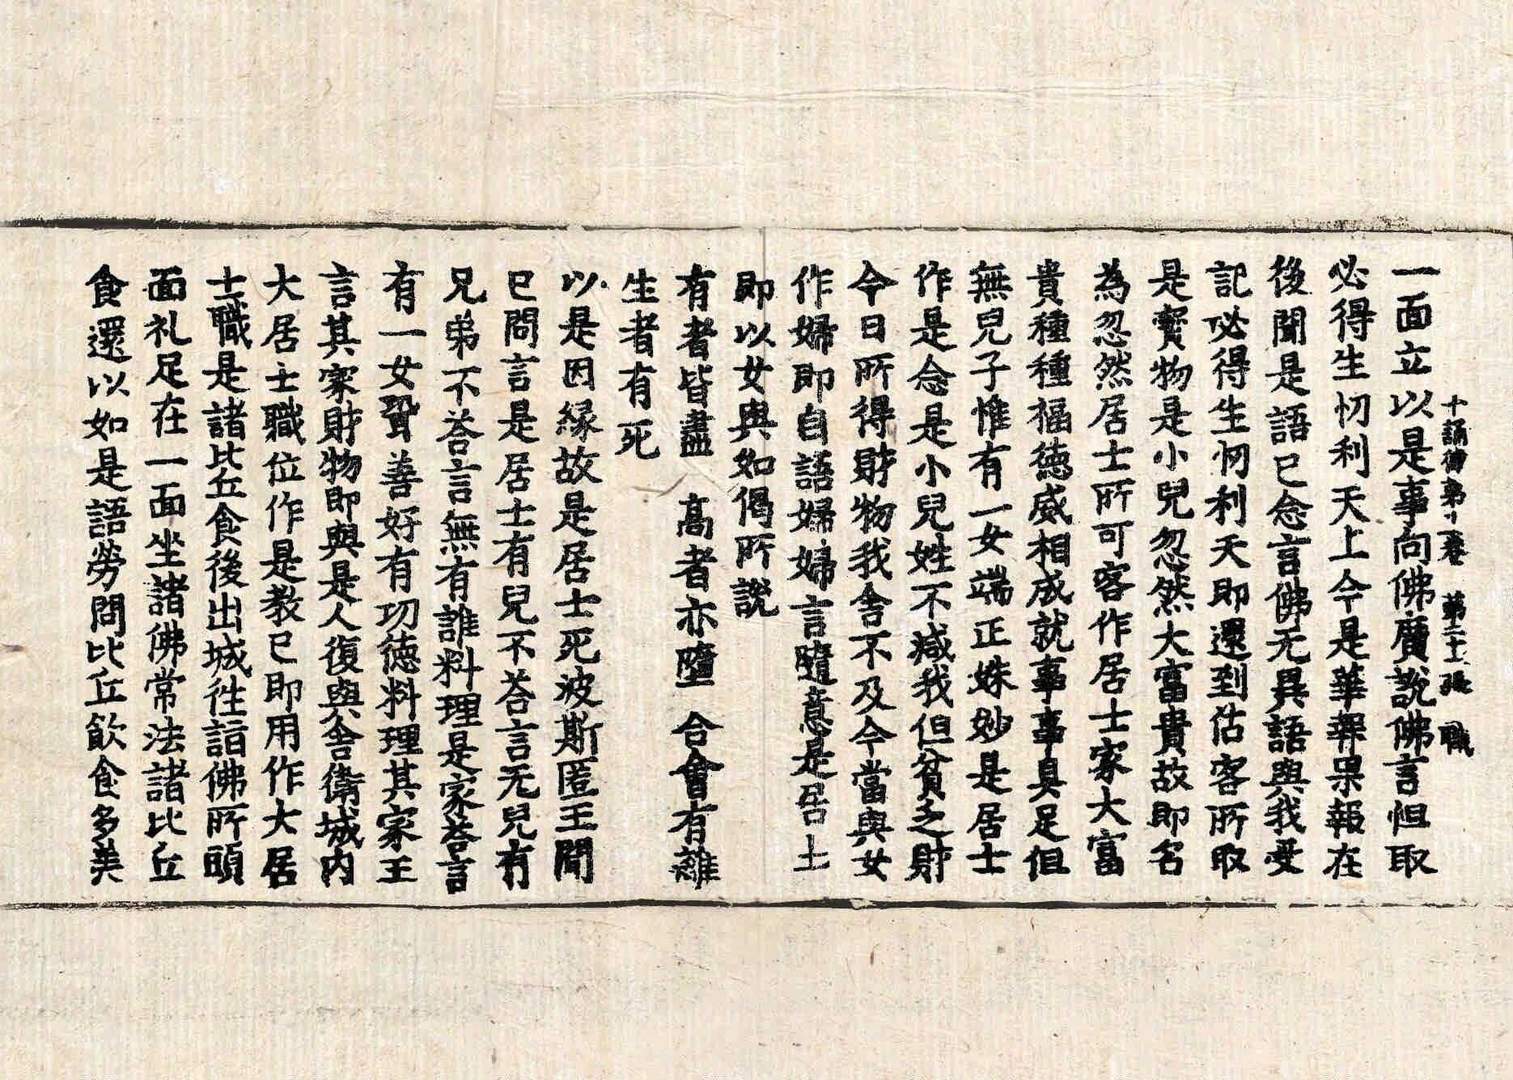 十誦律第十二卷 第二十二張 職
一面立以是事向佛廣說佛言但取
必得生忉利天上今是華報果報在
後聞是語已念言佛无異語與我受
記必得生忉利天即還到估客所取
是寶物是小兒忽然大富貴故即名
為忽然居士所可客作居士家大富
貴種種福德威相成就事事具足但
無兒子惟有一女端正姝妙是居士
作是念是小兒姓不減我但貧乏財
今日所得財物我舍不及今當與女
作婦即自語婦婦言隨意是居士
即以女與如偈所說
有者皆盡 高者亦墮 合會有離
生者有死
以是因緣故是居士死波斯匿王聞
已問言是居士有兒不荅言无兒有
兄弟不荅言無有誰料理是家荅言
有一女聟善好有功德料理其家王
言其家財物即與是人復與舍衛城內
大居士職位作是教已即用作大居
士職是諸比丘食後出城往詣佛所頭
面礼足在一面坐諸佛常法諸比丘
食還以如是語勞問比丘飲食多美